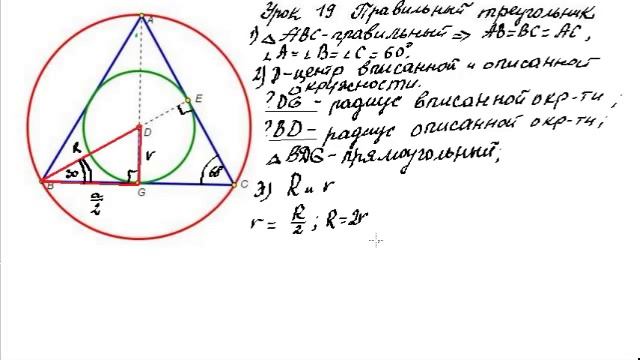 Урок 19 Правильный треугольник
1) △ABC-правильный ⇒ AB=BC=AC,
∠A=∠B=∠C=60°.
2) D-центр вписанной и описанной
окружности.
? DG - радиус вписанной окр-ти;
? BD - радиус описанной окр-ти;
△BDG-прямоугольный;
3) R и r
r = R/2 ; R=2r
A
E
D
R
r
30
60°
B
G
C
a/2